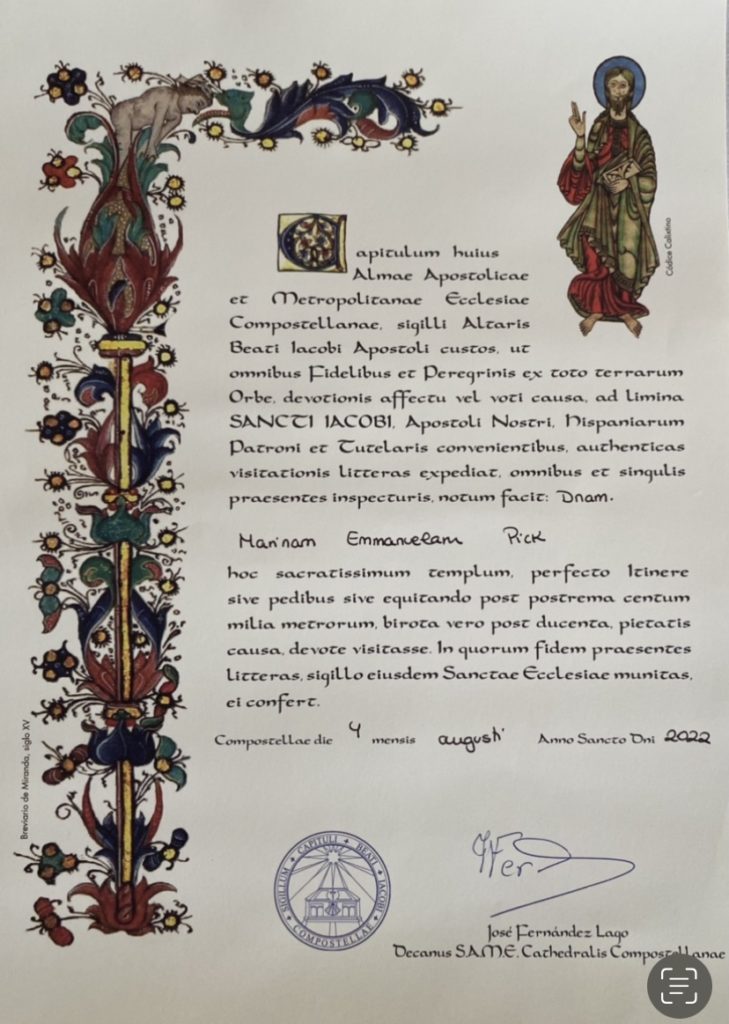 Códice Calixtino
Capitulum huius
Almae Apostolicae
et Metropolitanae Ecclesiae
Compostellanae, sigilli Altaris
Beati Iacobi Apostoli custos, ut
omnibus Fidelibus et Peregrinis ex toto terrarum
Orbe, devotionis affectu vel voti causa, ad limina
SANCTI IACOBI, Apostoli Nostri, Hispaniarum
Patroni et Tutelaris convenientibus, authenticas
visitationis litteras expediat, omnibus et singulis
praesentes inspecturis, notum facit: Dnam.
Marinam Emmanuelam Pick
hoc sacratissimum templum, perfecto Itinere
sive pedibus sive equitando post postrema centum
milia metrorum, birota vero post ducenta, pietatis
causa, devote visitasse. In quorum fidem praesentes
litteras, sigillo eiusdem Sanctae Ecclesiae munitas,
ei confert.
Compostellae die 4 mensis augusti Anno Sancto Dni 2022
Breviario de Miranda, siglo XV
SIGILLUM CAPITULI BEATI IACOBI COMPOSTELLAE
José Fernández Lago
Decanus S.A.M.E. Cathedralis Compostellanae